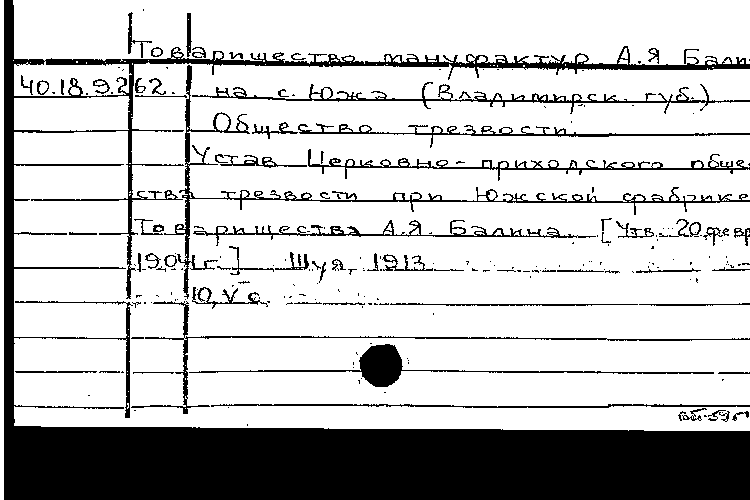 Товарищество мануфактур А.Я Бали
40.18.9.262. на. с. Южа. (Владимирск. губ.)
Общество трезвости.
Устав Церковно-приходского обще
ства трезвости при Южской фабрике
Товарищества А.Я. Балина. [Утв. 20 февр
1904 г.] Шуя, 1913.
10, V с.